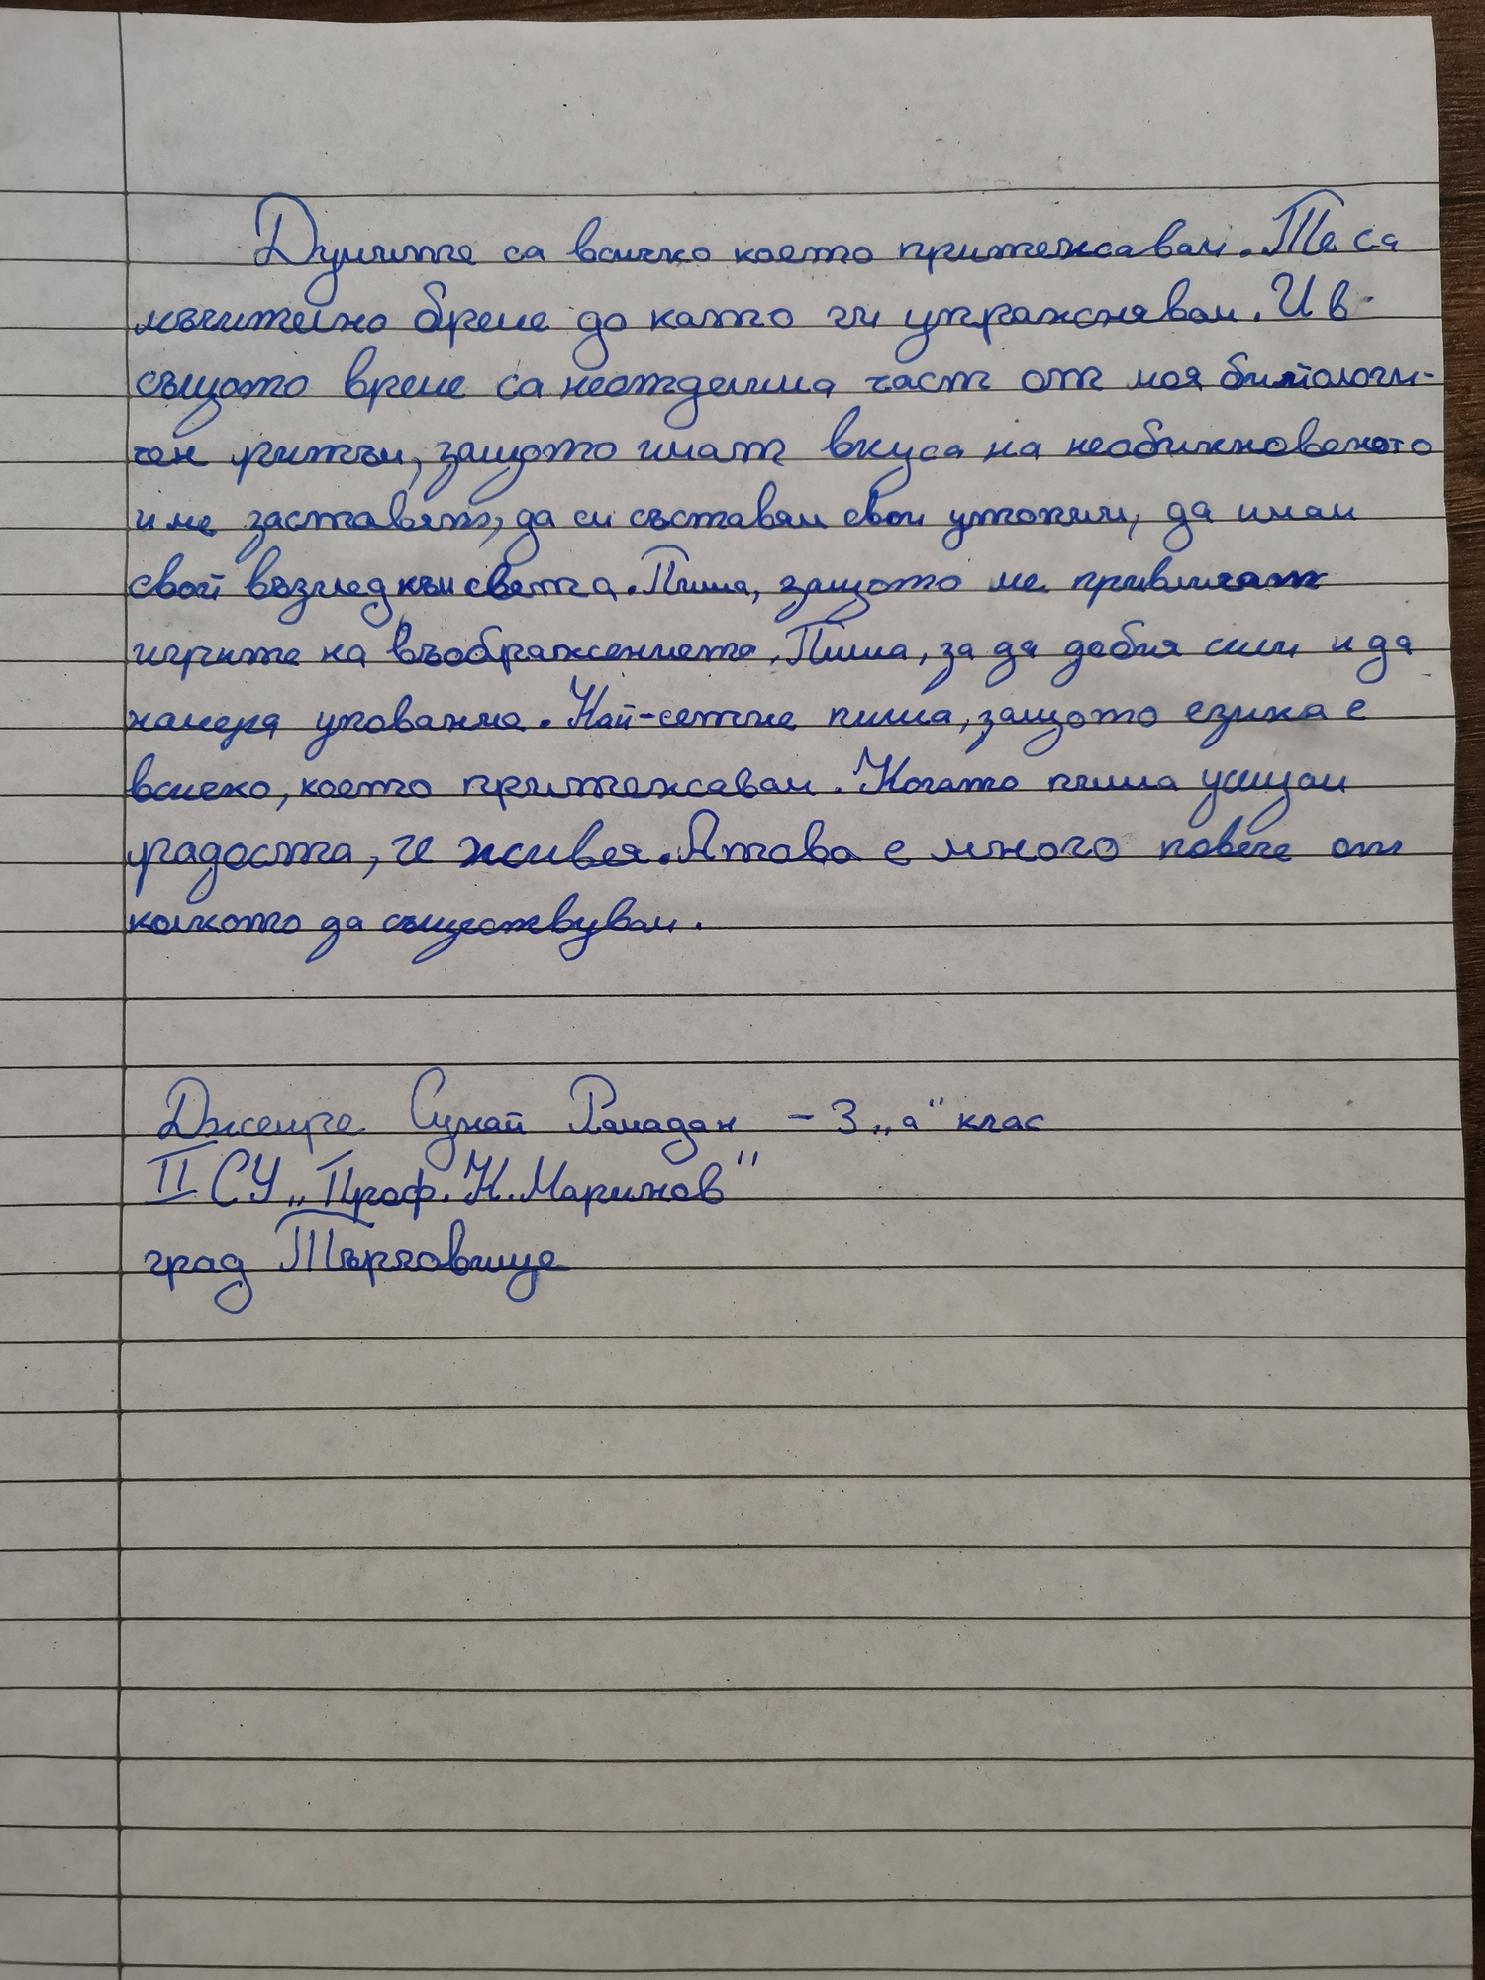 Думите са всичко което притежавам. Те са
мъчително бреме до като ги упражснявам. И в
същото време са неотделима част от моя биологи-
чен ритъм, защото имат вкуса на необикновеното
и ме заставят, да си съставям свои утопии, да имам
свой възглед към света. Пиша, защото ме привличат
игрите на въображението. Пиша, за да добия сили и да
намеря упование. Най-сетне пиша, защото езика е
всичко, което притежавам. Когато пиша усещам
радостта, че живея. А това е много повече от
колкото да съществувам.
Сунай Рамадан - 3 „а" клас
II СУ „Проф. Н. Маринов"
град Търговище